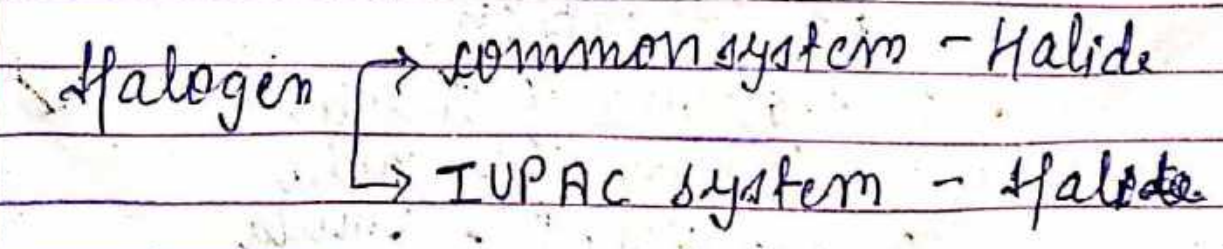 Halogen → common system - Halide
→ IUPAC system -